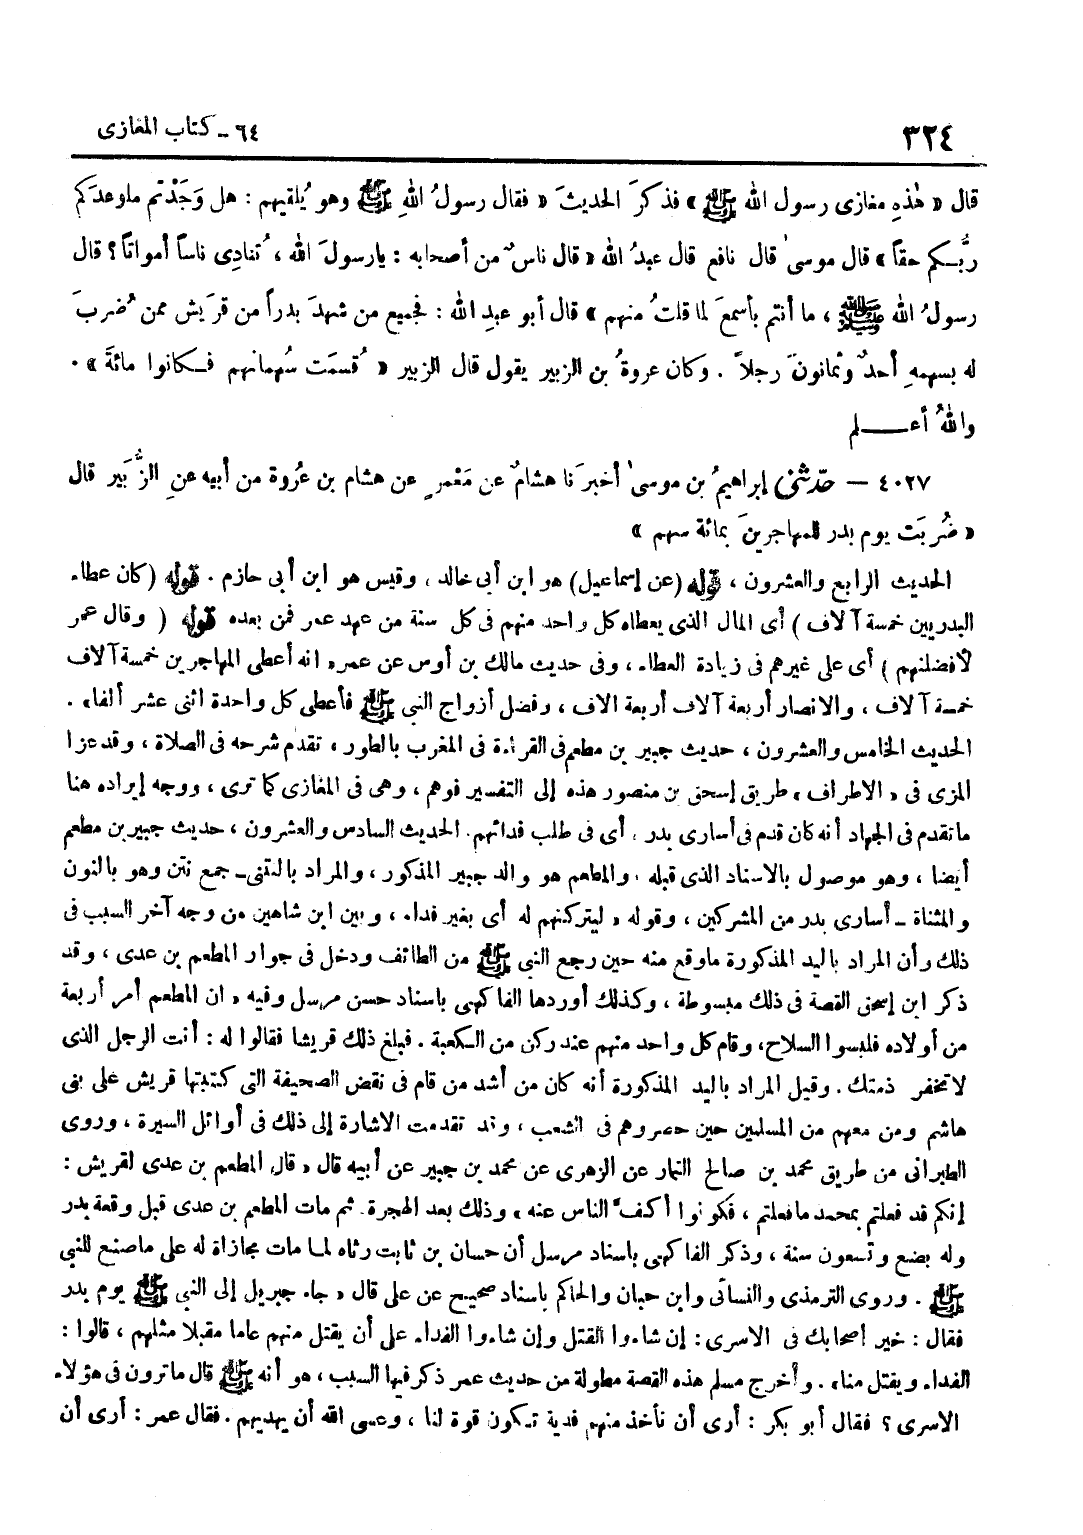 ٣٢٤
٦٤ - كتاب المغازى
قال « هٰذهِ مغازى رسول الله ﷺ » فذكرَ الحديثَ « فقال رسولُ اللهِ ﷺ وهو يُلقيهم : هل وَجَدْتم ما وعدَكم
ربُّـكم حقاً » قال موسىٰ قال نافع قال عبدُ الله « قال ناسٌ من أصحابه : يارسولَ الله ، تُنادِى ناساً أمواتاً ؟ قال
رسولُ الله ﷺ ، ما أنتم بأسمعَ لما قلتُ منهم » قال أبو عبدِ الله : فجميع من شهدَ بدراً من قرَيش ممن ضُربَ
له بسهمهِ أحدٌ وثمانونَ رجلاً . وكان عروةُ بن الزبير يقول قال الزبير « قُسمَت سُهمانهم فـكانوا مائةَ » .
واللهُ أعـــلم
٤٠٢٧ — حدّثنى إبراهيمُ بن موسىٰ أخبرَنا هشامٌ عن مَعْمرٍ عن هشام بن عُروة من أبيه عنِ الزُّبَير قال
« ضُربَت يوم بدر للمهاجرينَ بمائة سهم »
الحديث الرابع والعشرون ، قوله (عن إسماعيل) هو ابن أبى خالد ، وقيس هو ابن أبى حازم . قوله (كان عطاء
البدريين خمسة آلاف ) أى المال الذى يعطاه كل واحد منهم فى كل سنة من عهد عمر فمن بعده قوله ( وقال عمر
لأفضلنهم ) أى على غيرهم فى زيادة العطاء ، وفى حديث مالك بن أوس عن عمر « انه أعطى المهاجرين خمسة آلاف
خمسة آلاف ، والانصار أربعة آلاف أربعة الاف ، وفضل أزواج النبى ﷺ فأعطى كل واحدة اثنى عشر ألفا » .
الحديث الخامس والعشرون ، حديث جبير بن مطعم فى القراءة فى المغرب بالطور ، تقدم شرحه فى الصلاة ، وقد عزا
المزى فى « الاطراف » طريق إسحق بن منصور هذه إلى التفسير فوهم ، وهى فى المغازى كما ترى ، ووجه إيراده هنا
ما تقدم فى الجهاد أنه كان قدم فى أسارى بدر ، أى فى طلب فدائهم . الحديث السادس والعشرون ، حديث جبير بن مطعم
أيضا ، وهو موصول بالاسناد الذى قبله ، والمطعم هو والد جبير المذكور ، والمراد بالنتنى ـ جمع نتن وهو بالنون
والمثناة ـ أسارى بدر من المشركين ، وقوله « ليتركنهم له أى بغير فداء ، وبين ابن شاهين من وجه آخر السبب فى
ذلك وأن المراد باليد المذكورة ماوقع منه حين رجع النبى ﷺ من الطائف ودخل فى جوار المطعم بن عدى ، وقد
ذكر ابن إسحق القصة فى ذلك مبسوطة ، وكذلك أوردها الفاكهى باسناد حسن مرسل وفيه « ان المطعم أمر أربعة
من أولاده فلبسوا السلاح ، وقام كل واحد منهم عند ركن من الـكعبة . فبلغ ذلك قريشا فقالوا له : أنت الرجل الذى
لا تخفر ذمتك . وقيل المراد باليد المذكورة أنه كان من أشد من قام فى نقض الصحيفة التى كتبتها قريش على بنى
هاشم ومن معهم من المسلمين حين حصروهم فى الشعب ، وقد تقدمت الاشارة إلى ذلك فى أوائل السيرة ، وروى
الطبرانى من طريق محمد بن صالح التمار عن الزهرى عن محمد بن جبير عن أبيه قال « قال المطعم بن عدى لقريش :
إنكم قد فعلتم بمحمد ما فعلتم ، فكونوا أكفّ الناس عنه » وذلك بعد الهجرة . ثم مات المطعم بن عدى قبل وقعة بدر
وله بضع وتسعون سنة ، وذكر الفاكهى باسناد مرسل أن حسان بن ثابت رثاه لما مات مجازاة له على ما صنع للنبى
ﷺ . وروى الترمذى والنسائى وابن حبان والحاكم باسناد صحيح عن على قال « جاء جبريل إلى النبى ﷺ يوم بدر
فقال : خير أصحابك فى الاسرى : إن شاءوا القتل وإن شاءوا الفداء على أن يقتل منهم عاما مقبلا مثلهم ، قالوا :
الفداء ويقتل منا » . وأخرج مسلم هذه القصة مطولة من حديث عمر ذكر فيها السبب ، هو أنه ﷺ قال ما ترون فى هؤلاء
الاسرى ؟ فقال أبو بكر : أرى أن نأخذ منهم فدية تـكون قوة لنا ، وعسى الله أن يهديهم . فقال عمر : أرى أن